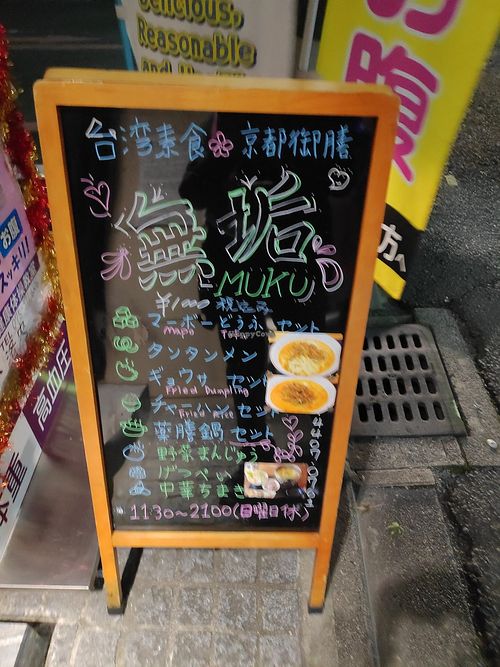 Delicious,
Reasonable
台湾素食 京都御膳
無垢
MUKU
¥1000 税込み
マーボーどうふ セット
Mapo Tofu
タンタンメン
ギョウザ セット
Fried Dumpling
チャーハン セット
Fried rice
薬膳鍋 セット
野菜まんじゅう
げっぺい
中華ちまき
11:30~21:00(日曜日休)
お腹
スッキリ!
高血圧
腹
方へ